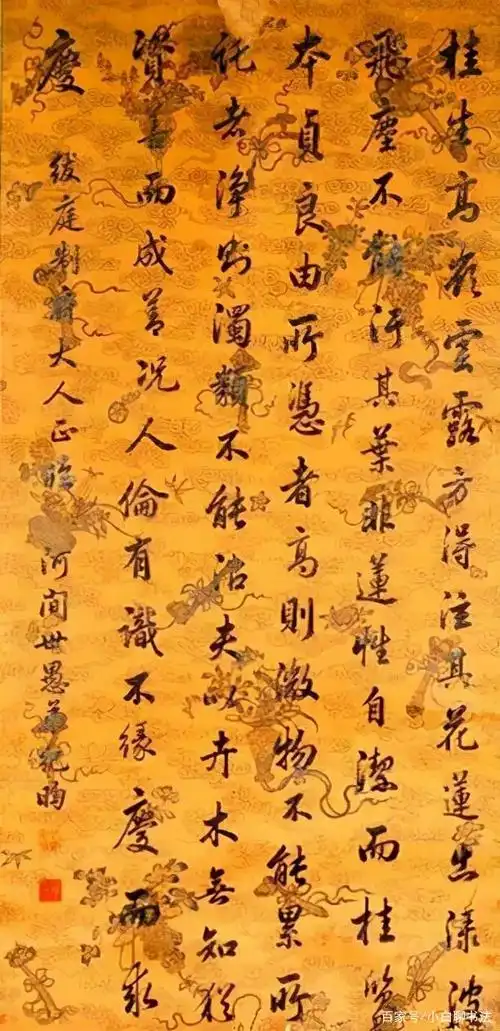 桂生高嶺雲露方得注其花蓮出淥波
飛塵不能汙其葉非蓮性自潔而桂質
本貞良由所憑者高則微物不能累所
託者淨則濁類不能沾夫以卉木無知猶
資善而成善況人倫有識不緣慶而求
慶
紱庭制府大人正 河間世愚弟紀昀
百家号/小白聊书法